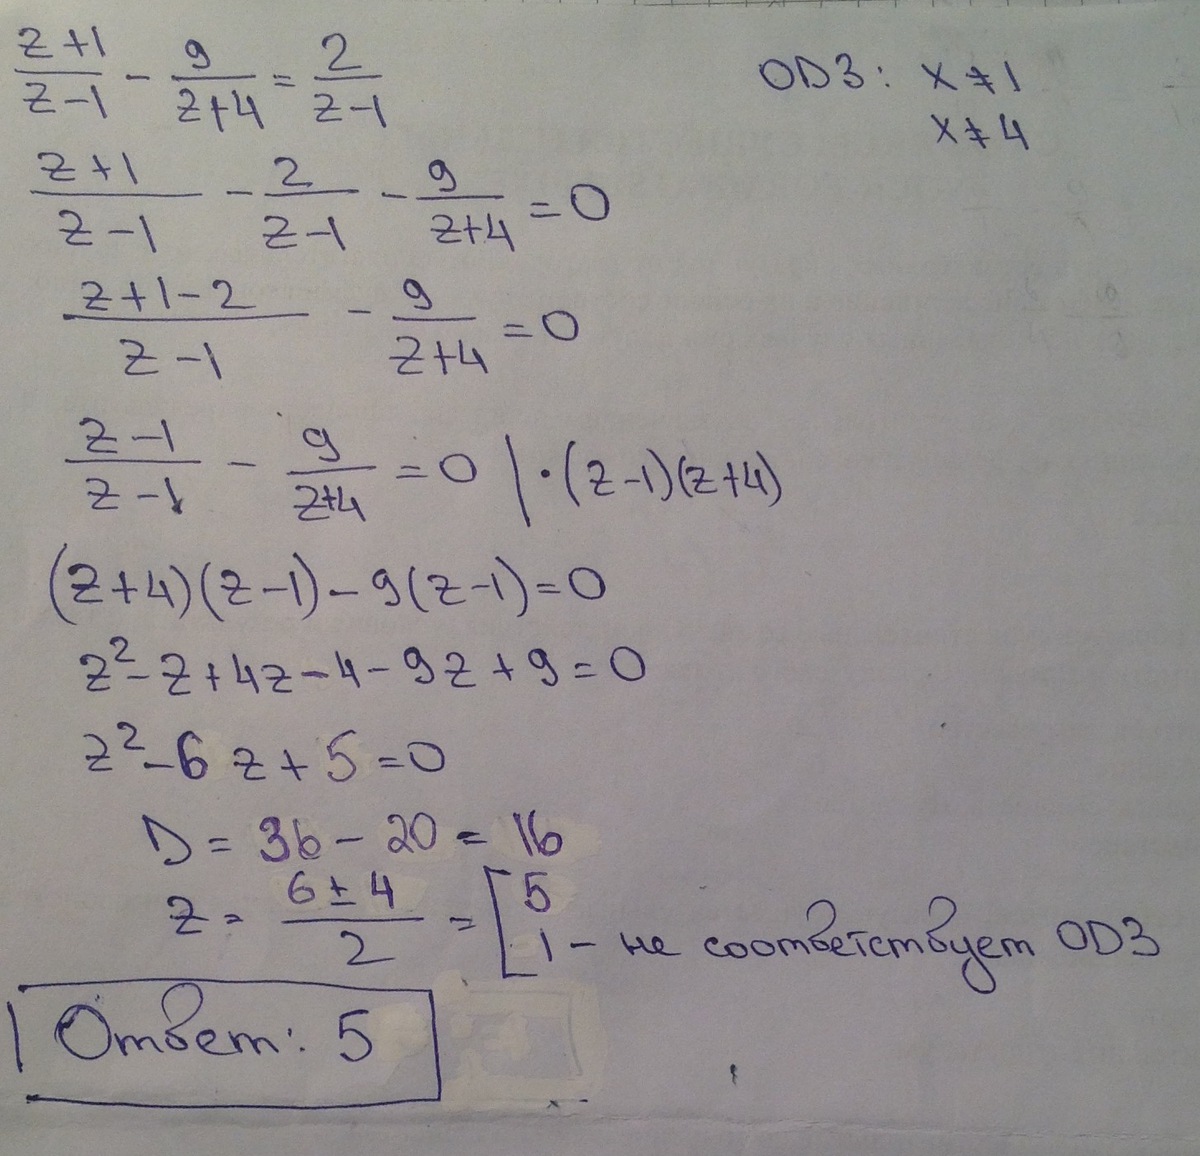 (z+1)/(z-1) - 9/(z+4) = 2/(z-1)
ОDЗ: x ≠ 1
x ≠ 4
(z+1)/(z-1) - 2/(z-1) - 9/(z+4) = 0
(z+1-2)/(z-1) - 9/(z+4) = 0
(z-1)/(z-1) - 9/(z+4) = 0 | ·(z-1)(z+4)
(z+4)(z-1) - 9(z-1) = 0
z² - z + 4z - 4 - 9z + 9 = 0
z² - 6z + 5 = 0
D = 36 - 20 = 16
z = (6 ± 4)/2 = [ 5
1 - не соответствует ОDЗ
Ответ: 5